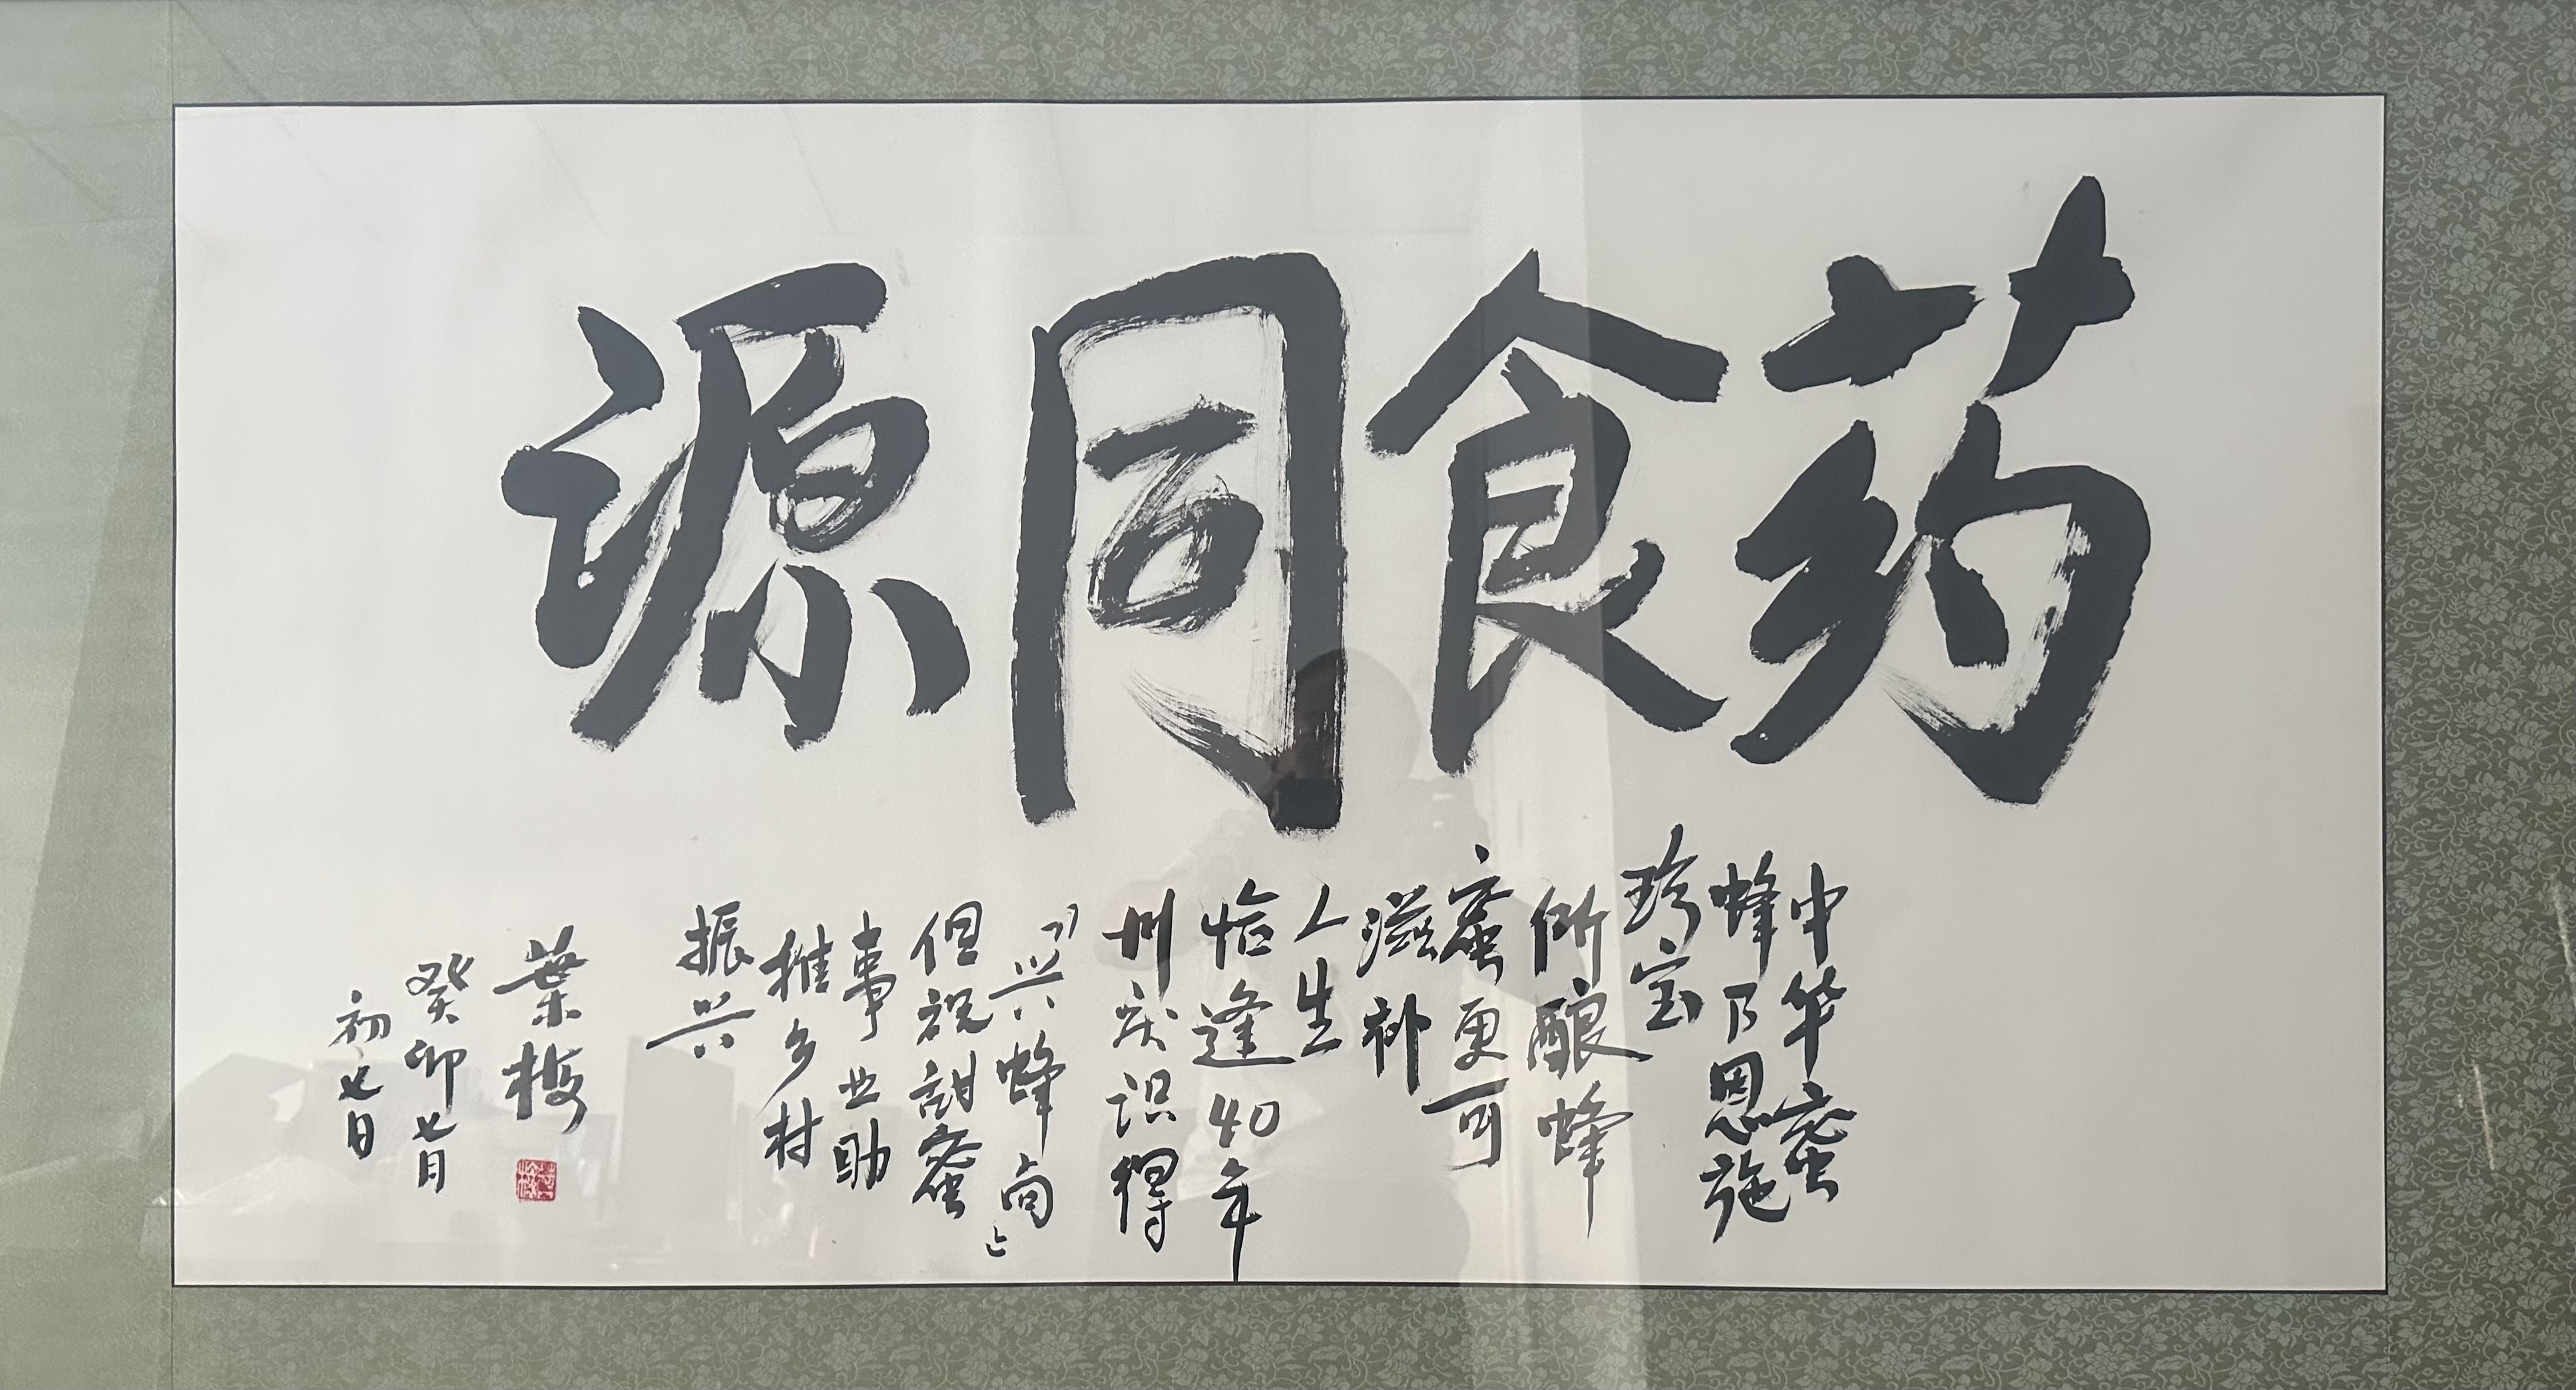 药食同源
中华蜜
蜂乃恩施
珍宝
所酿蜂
蜜更可
滋补
人生
恰逢40年
州庆识得
「兴蜂尚」
但祝甜蜜
事业助
推乡村
振兴
葉梅
癸卯七月
初七日